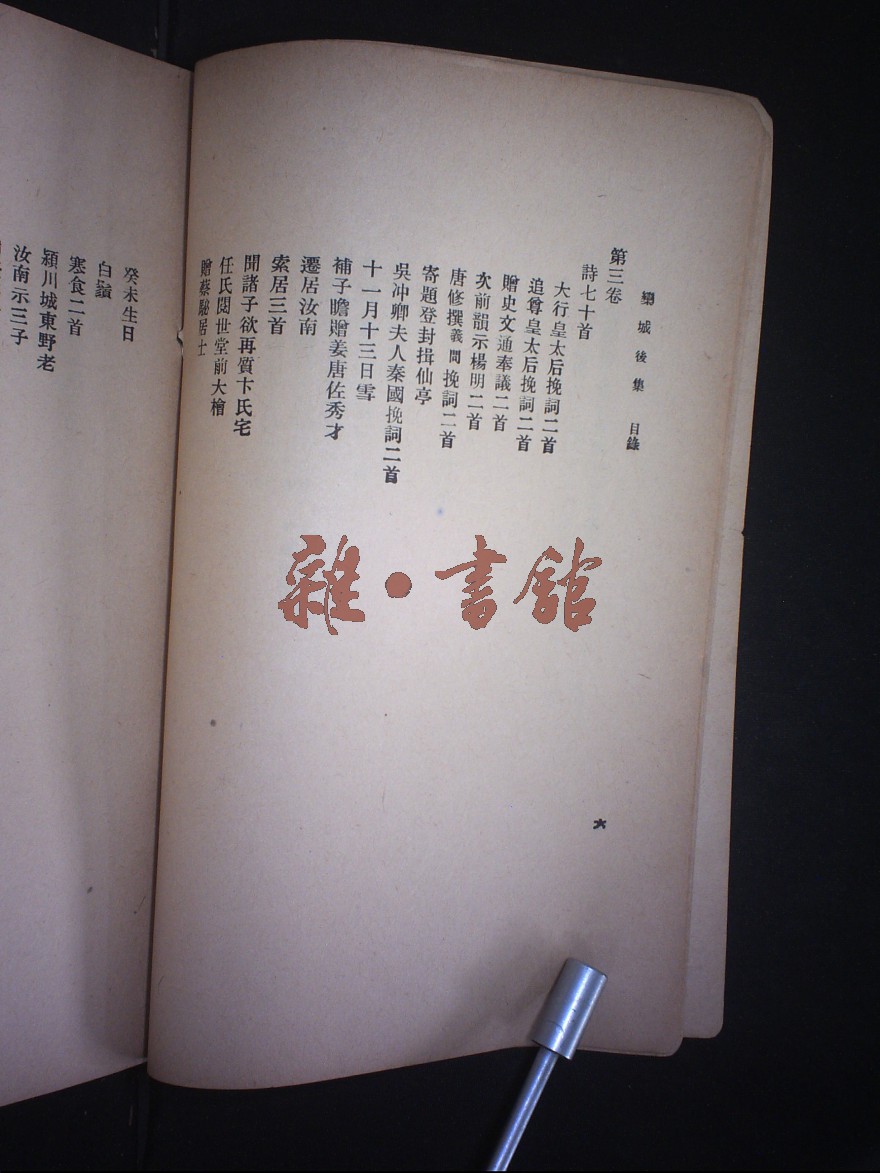 欒城後集 目錄
第三卷
詩七十首
大行皇太后挽詞二首
追尊皇太后挽詞二首
贈史文通奉議二首
次前韻示楊明二首
唐修撰義問挽詞二首
寄題登封揖仙亭
吳冲卿夫人秦國挽詞二首
十一月十三日雪
補子瞻贈姜唐佐秀才
遷居汝南
索居三首
聞諸子欲再質卞氏宅
任氏閱世堂前大檜
贈蔡駜居士
六
癸未生日
白鬚
寒食二首
潁川城東野老
汝南示三子
雜・書館